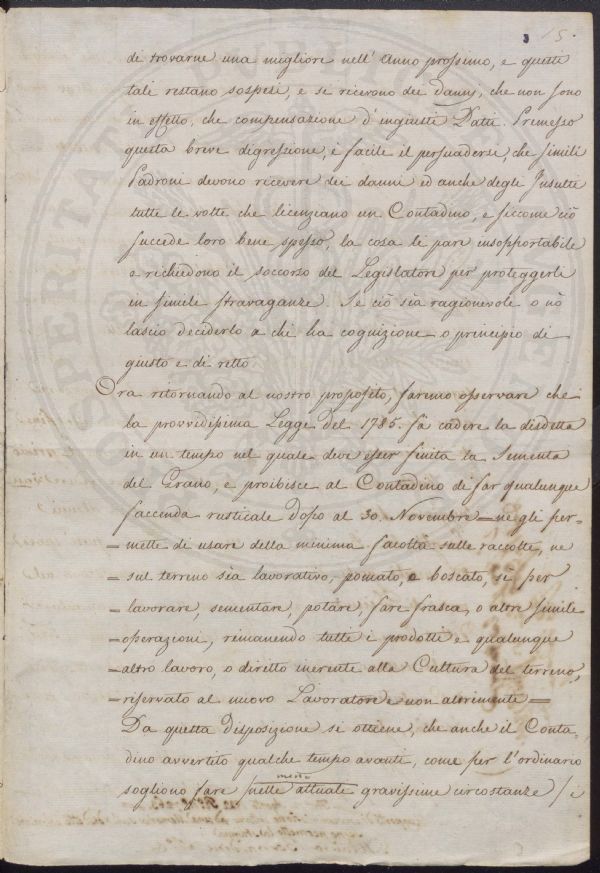 15.
di trovarne una migliore nell' anno prossimo, e questi
tali restano sospesi, e se ricevono dei danny, che non sono
in effetto, che compensazione d'ingiusti Datii. Premesso
questa breve digressione, è facile il persuadersi, che simili
Padroni devono ricevere dei danni ed anche degli Insulti
tutte le volte che licenziano un Contadino, e siccome ciò
succede loro bene spesso, la cosa li pare insopportabile
e richiedono il soccorso del Legislatore per proteggerli
in simile stravaganze. Se ciò sia ragionevole o nò
lascio deciderlo a chi ha cognizione o principio di
giusto e di retto
Ora ritornando al nostro proposito, faremo osservare che
la provvidissima Legge del 1785. fà cadere la disdetta
in un tempo nel quale deve esser finita la Sementa
del Grano, e proibisce al Contadino di far qualunque
faccenda rusticale dopo al 30. Novembre = ne gli per-
= mette di usare della minima facoltà sulle raccolte, ne
= sul terreno sia lavorativo, pomato, o boscato, sì per
= lavorare, sementare, potare, fare frasca, o altre simile
= operazioni, rimanendo tutti i prodotti e qualunque
= altro lavoro, o diritto inerente alla Cultura del terreno,
= riservato al nuovo Lavoratore e non altrimente =
Da questa disposizione si ottiene, che anche il Conta-
dino avvertito qualche tempo avanti, come per l'ordinario
meno
sogliono fare (nelle attuale gravissime circostanze) i